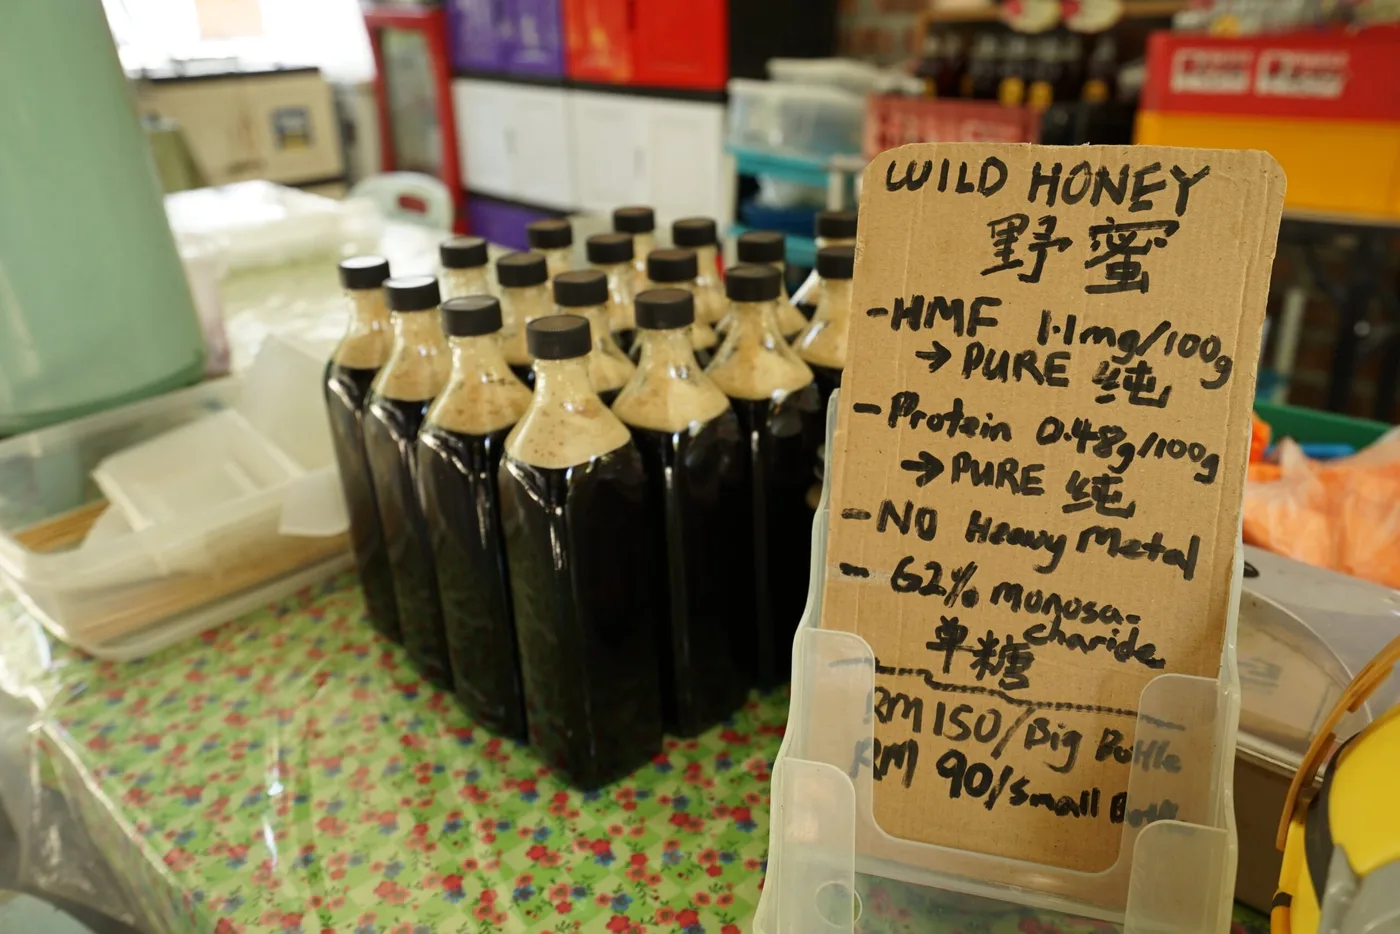 WILD HONEY
野蜜
-HMF 1.1mg/100g
→ PURE 纯
- Protein 0.48g/100g
→ PURE 纯
- NO Heavy Metal
- 62% monosa-
charide
单糖
RM150/Big Bottle
RM 90/small Bottle